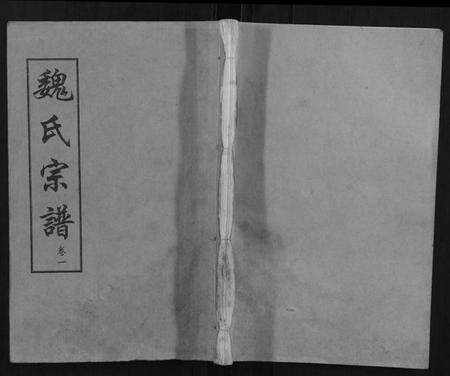 魏氏宗譜
卷一